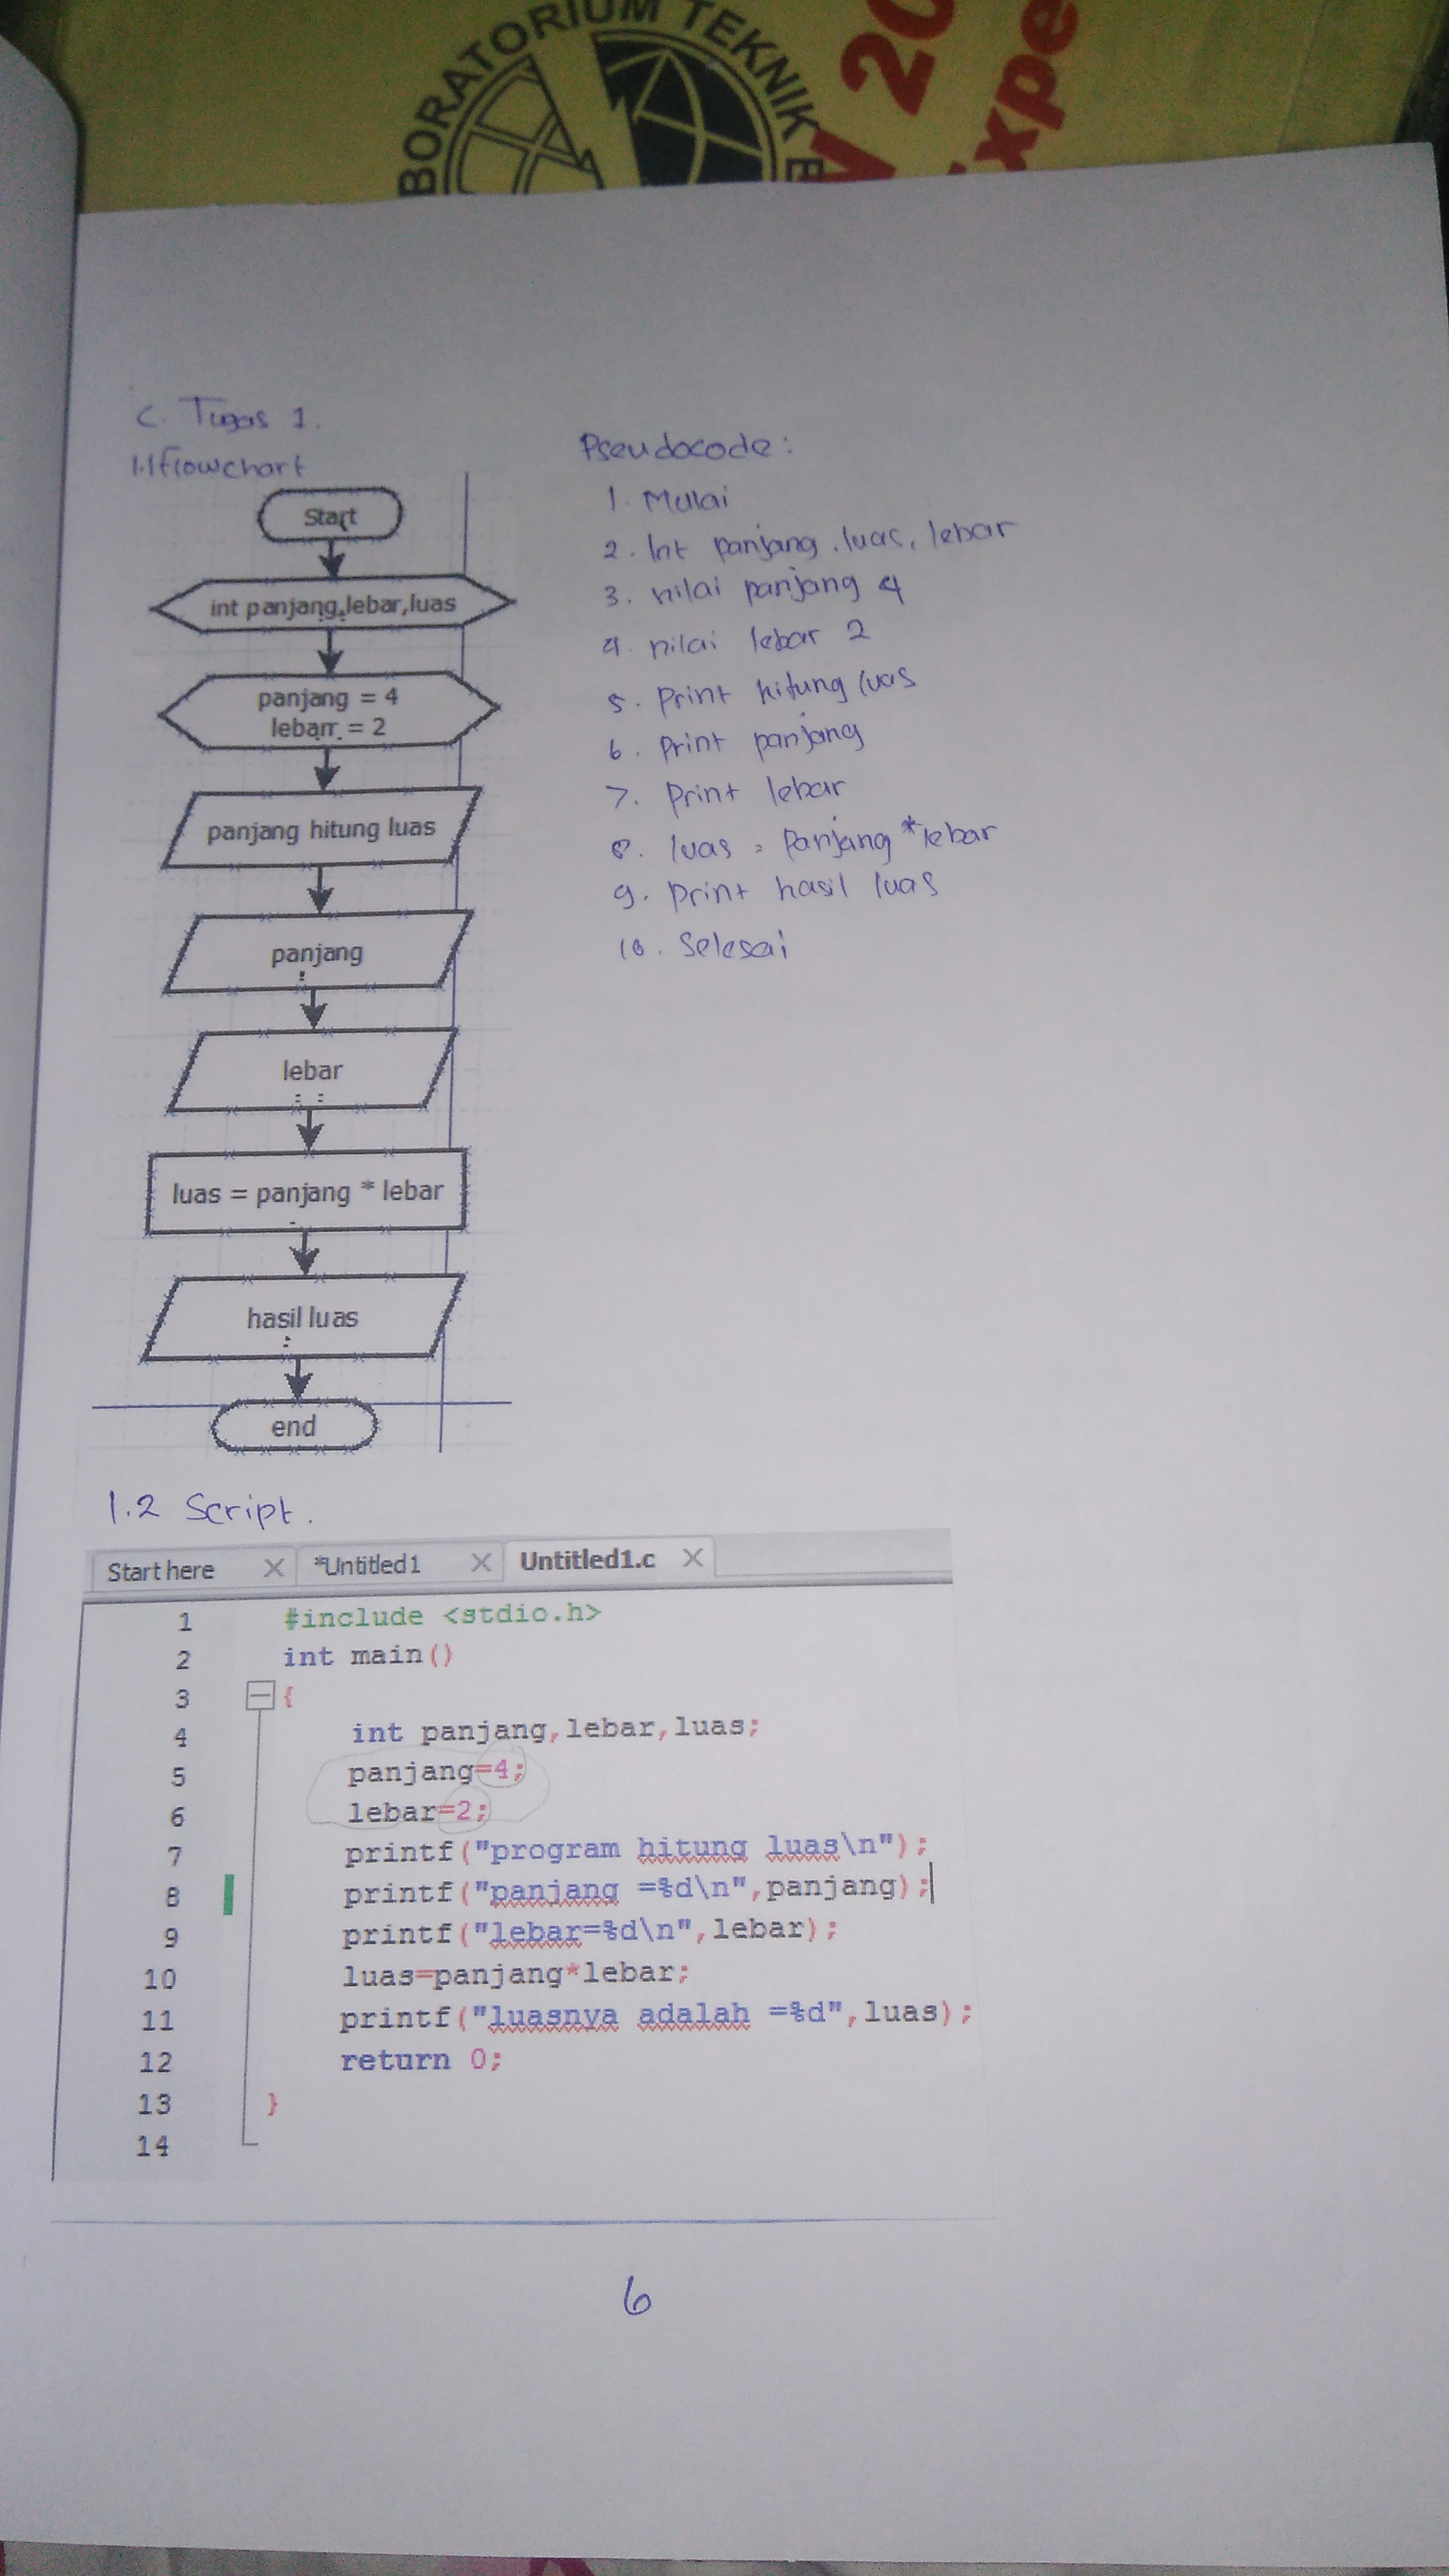 BORATORIUM TEKNIK E
20
xpe
C. Tugas 1.
1.1 flowchart
Start
int panjang,lebar,luas
panjang = 4
lebarr = 2
panjang hitung luas
panjang
lebar
luas = panjang * lebar
hasil luas
end
Pseudocode :
1. Mulai
2. Int panjang, luas, lebar
3. nilai panjang 4
4. nilai lebar 2
5. Print hitung luas
6. Print panjang
7. Print lebar
8. luas = Panjang * lebar
9. Print hasil luas
10. Selesai
1.2 Script.
Start here X *Untitled1 X Untitled1.c X
1 #include <stdio.h>
2 int main()
3 {
4 int panjang,lebar,luas;
5 panjang=4;
6 lebar=2;
7 printf("program hitung luas\n");
8 printf("panjang =%d\n",panjang);
9 printf("lebar=%d\n",lebar);
10 luas=panjang*lebar;
11 printf("luasnya adalah =%d",luas);
12 return 0;
13 }
14
6